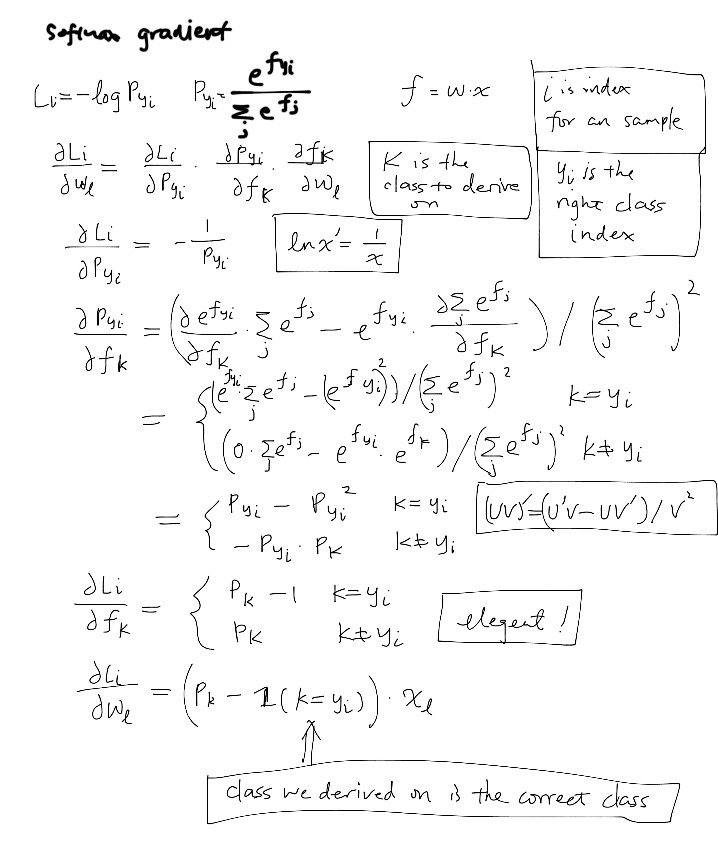 Softmax gradient
Li = -log Pyi    Pyi = e^fyi / Σj e^fj    f = w·x
i is index
for an sample
∂Li/∂wl = ∂Li/∂Pyi · ∂Pyi/∂fk · ∂fk/∂wl
K is the
class to derive
on
yi is the
right class
index
∂Li/∂Pyi = -1/Pyi    ln x' = 1/x
∂Pyi/∂fk = (∂e^fyi/∂fk · Σj e^fj - e^fyi · ∂Σj e^fj/∂fk) / (Σj e^fj)^2
= { (e^fyi · Σj e^fj - (e^fyi)^2) / (Σj e^fj)^2    k = yi
(0 · Σj e^fj - e^fyi · e^fk) / (Σj e^fj)^2    k ≠ yi
= { Pyi - Pyi^2    k = yi
-Pyi · Pk    k ≠ yi
(uv)' = (u'v - uv') / v^2
∂Li/∂fk = { Pk - 1    k = yi
Pk    k ≠ yi
elegent !
∂Li/∂wl = (Pk - 1(k = yi)) · xl
class we derived on is the correct class